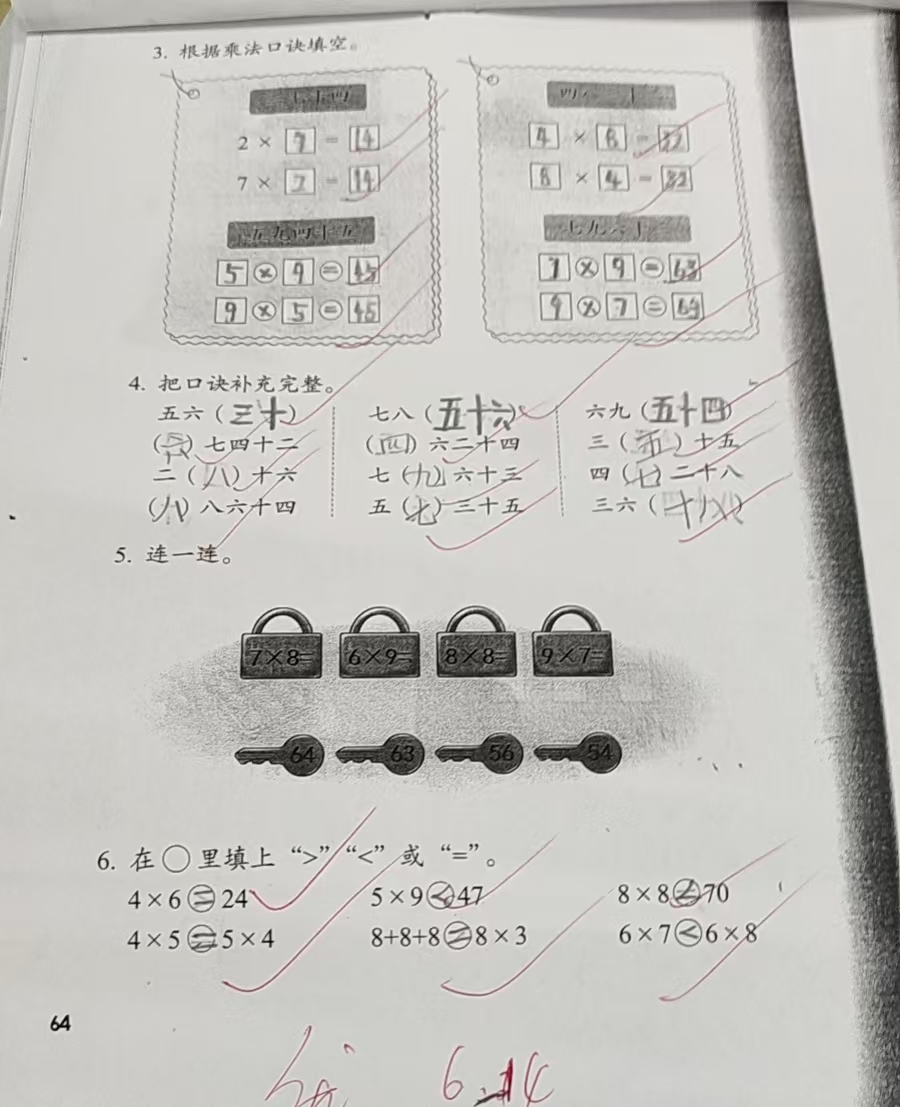 3. 根据乘法口诀填空。
二七十四
2 × 7 = 14
7 × 2 = 14
五九四十五
5 × 9 = 45
9 × 5 = 45
四八三十二
4 × 8 = 32
8 × 4 = 32
七九六十三
7 × 9 = 63
9 × 7 = 63
4. 把口诀补充完整。
五六（三十） 七八（五十六） 六九（五十四）
（六）七四十二 （四）六二十四 三（五）十五
二（八）十六 七（九）六十三 四（七）二十八
（八）八六十四 五（七）三十五 三六（十八）
5. 连一连。
7×8= 6×9= 8×8= 9×7=
64 63 56 54
6. 在○里填上“>”“<”或“=”。
4×6=24 5×9<47 8×8<70
4×5=5×4 8+8+8=8×3 6×7<6×8
64
6.14